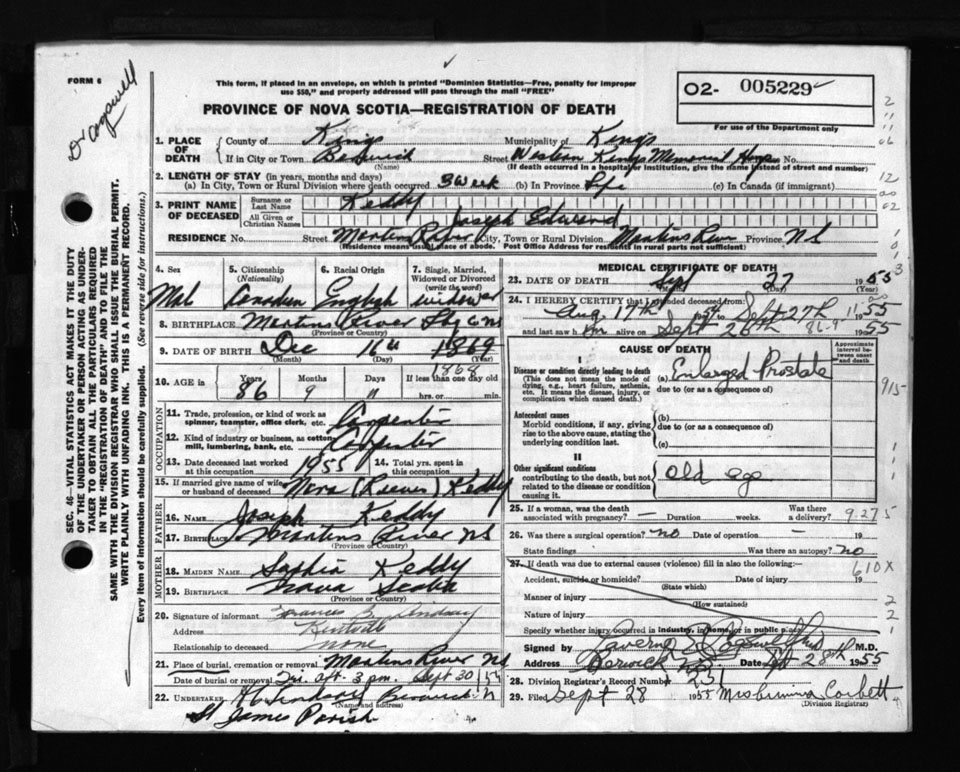 FORM 6
Dr Cogswell
This form, if placed in an envelope, on which is printed "Dominion Statistics—Free, penalty for improper
use $50," and properly addressed will pass through the mail "FREE"
PROVINCE OF NOVA SCOTIA—REGISTRATION OF DEATH
O2- 005229
For use of the Department only
1. PLACE OF DEATH
County of Kings Municipality of Kings
If in City or Town Berwick Street Western Kings Memorial Hosp No.
(Name) (If death occurred in a hospital or institution, give the name instead of street and number)
2. LENGTH OF STAY (in years, months and days)
(a) In City, Town or Rural Division where death occurred 3 week (b) In Province Life (c) In Canada (if immigrant)
3. PRINT NAME OF DECEASED
Surname or Last Name Keddy
All Given or Christian Names Joseph Edward
RESIDENCE No. Street Martins River City, Town or Rural Division Martins River Province NS
(Residence means usual place of abode. Post Office Address for residents in rural parts not sufficient)
4. Sex
Mal
5. Citizenship (Nationality)
Canadian
6. Racial Origin
English
7. Single, Married, Widowed or Divorced (write the word)
widower
8. BIRTHPLACE Martins River
(Province or Country)
9. DATE OF BIRTH Dec 1869
(Month) (Day) (Year)
1868
10. AGE in Years Months Days If less than one day old
86 9 11 hrs. or min.
OCCUPATION
11. Trade, profession, or kind of work as
spinner, teamster, office clerk, etc. Carpenter
12. Kind of industry or business, as cotton
mill, lumbering, bank, etc. Carpenter
13. Date deceased last worked at this occupation 1955
14. Total yrs. spent in this occupation
15. If married give name of wife
or husband of deceased Nora (Reeves) Keddy
FATHER
16. NAME Joseph Keddy
17. BIRTHPLACE Martins River NS
(Province or Country)
MOTHER
18. MAIDEN NAME Sophia Keddy
19. BIRTHPLACE Nova Scotia
(Province or Country)
20. Signature of informant Frances
Address Kentville
Relationship to deceased none
21. Place of burial, cremation or removal Martins River NS
Date of burial or removal aft. 3 pm. Sept 30/55
22. UNDERTAKER Berwick N
(Name and address)
St James Parish
MEDICAL CERTIFICATE OF DEATH
23. DATE OF DEATH Sept 27 1955
(Month) (Day) (Year)
24. I HEREBY CERTIFY that I attended deceased from:
Aug 17th to Sept 27th 1955
and last saw him alive on Sept 26th 1955
86-9-11
CAUSE OF DEATH
Approximate interval between onset and death
I
Disease or condition directly leading to death
(This does not mean the mode of dying, e.g., heart failure, asthenia, etc. It means the disease, injury, or complication which caused death.)
(a) Enlarged Prostate
due to (or as a consequence of)
Antecedent causes
Morbid conditions, if any, giving rise to the above cause, stating the underlying condition last.
(b)
due to (or as a consequence of)
(c)
II
Other significant conditions
contributing to the death, but not related to the disease or condition causing it.
old age
25. If a woman, was the death associated with pregnancy? — Duration weeks. Was there a delivery?
9-27 5
26. Was there a surgical operation? no Date of operation — 19
State findings Was there an autopsy? no
27. If death was due to external causes (violence) fill in also the following:
610X
Accident, suicide or homicide? Date of injury 19
(State which)
Manner of injury
(How sustained)
Nature of injury
Specify whether injury occurred in industry, in home, or in public place
Signed by M.D.
Address Berwick NS Date Sept 28th 1955
28. Division Registrar's Record Number 231
29. Filed Sept 28 1955 Corbett
(Division Registrar)
SEC. 46—VITAL STATISTICS ACT MAKES IT THE DUTY
OF THE UNDERTAKER OR PERSON ACTING AS UNDER-
TAKER TO OBTAIN ALL THE PARTICULARS REQUIRED
IN THE "REGISTRATION OF DEATH" AND TO FILE THE
SAME WITH THE DIVISION REGISTRAR WHO SHALL ISSUE THE BURIAL PERMIT.
WRITE PLAINLY WITH UNFADING INK. THIS IS A PERMANENT RECORD.
Every item of information should be carefully supplied. (See reverse side for instructions.)